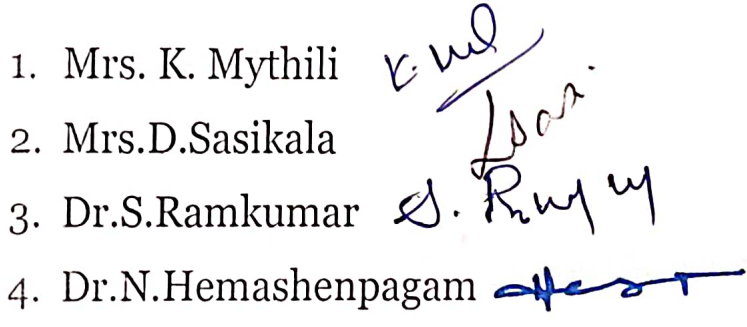 1. Mrs. K. Mythili
2. Mrs.D.Sasikala
3. Dr.S.Ramkumar
4. Dr.N.Hemashenpagam